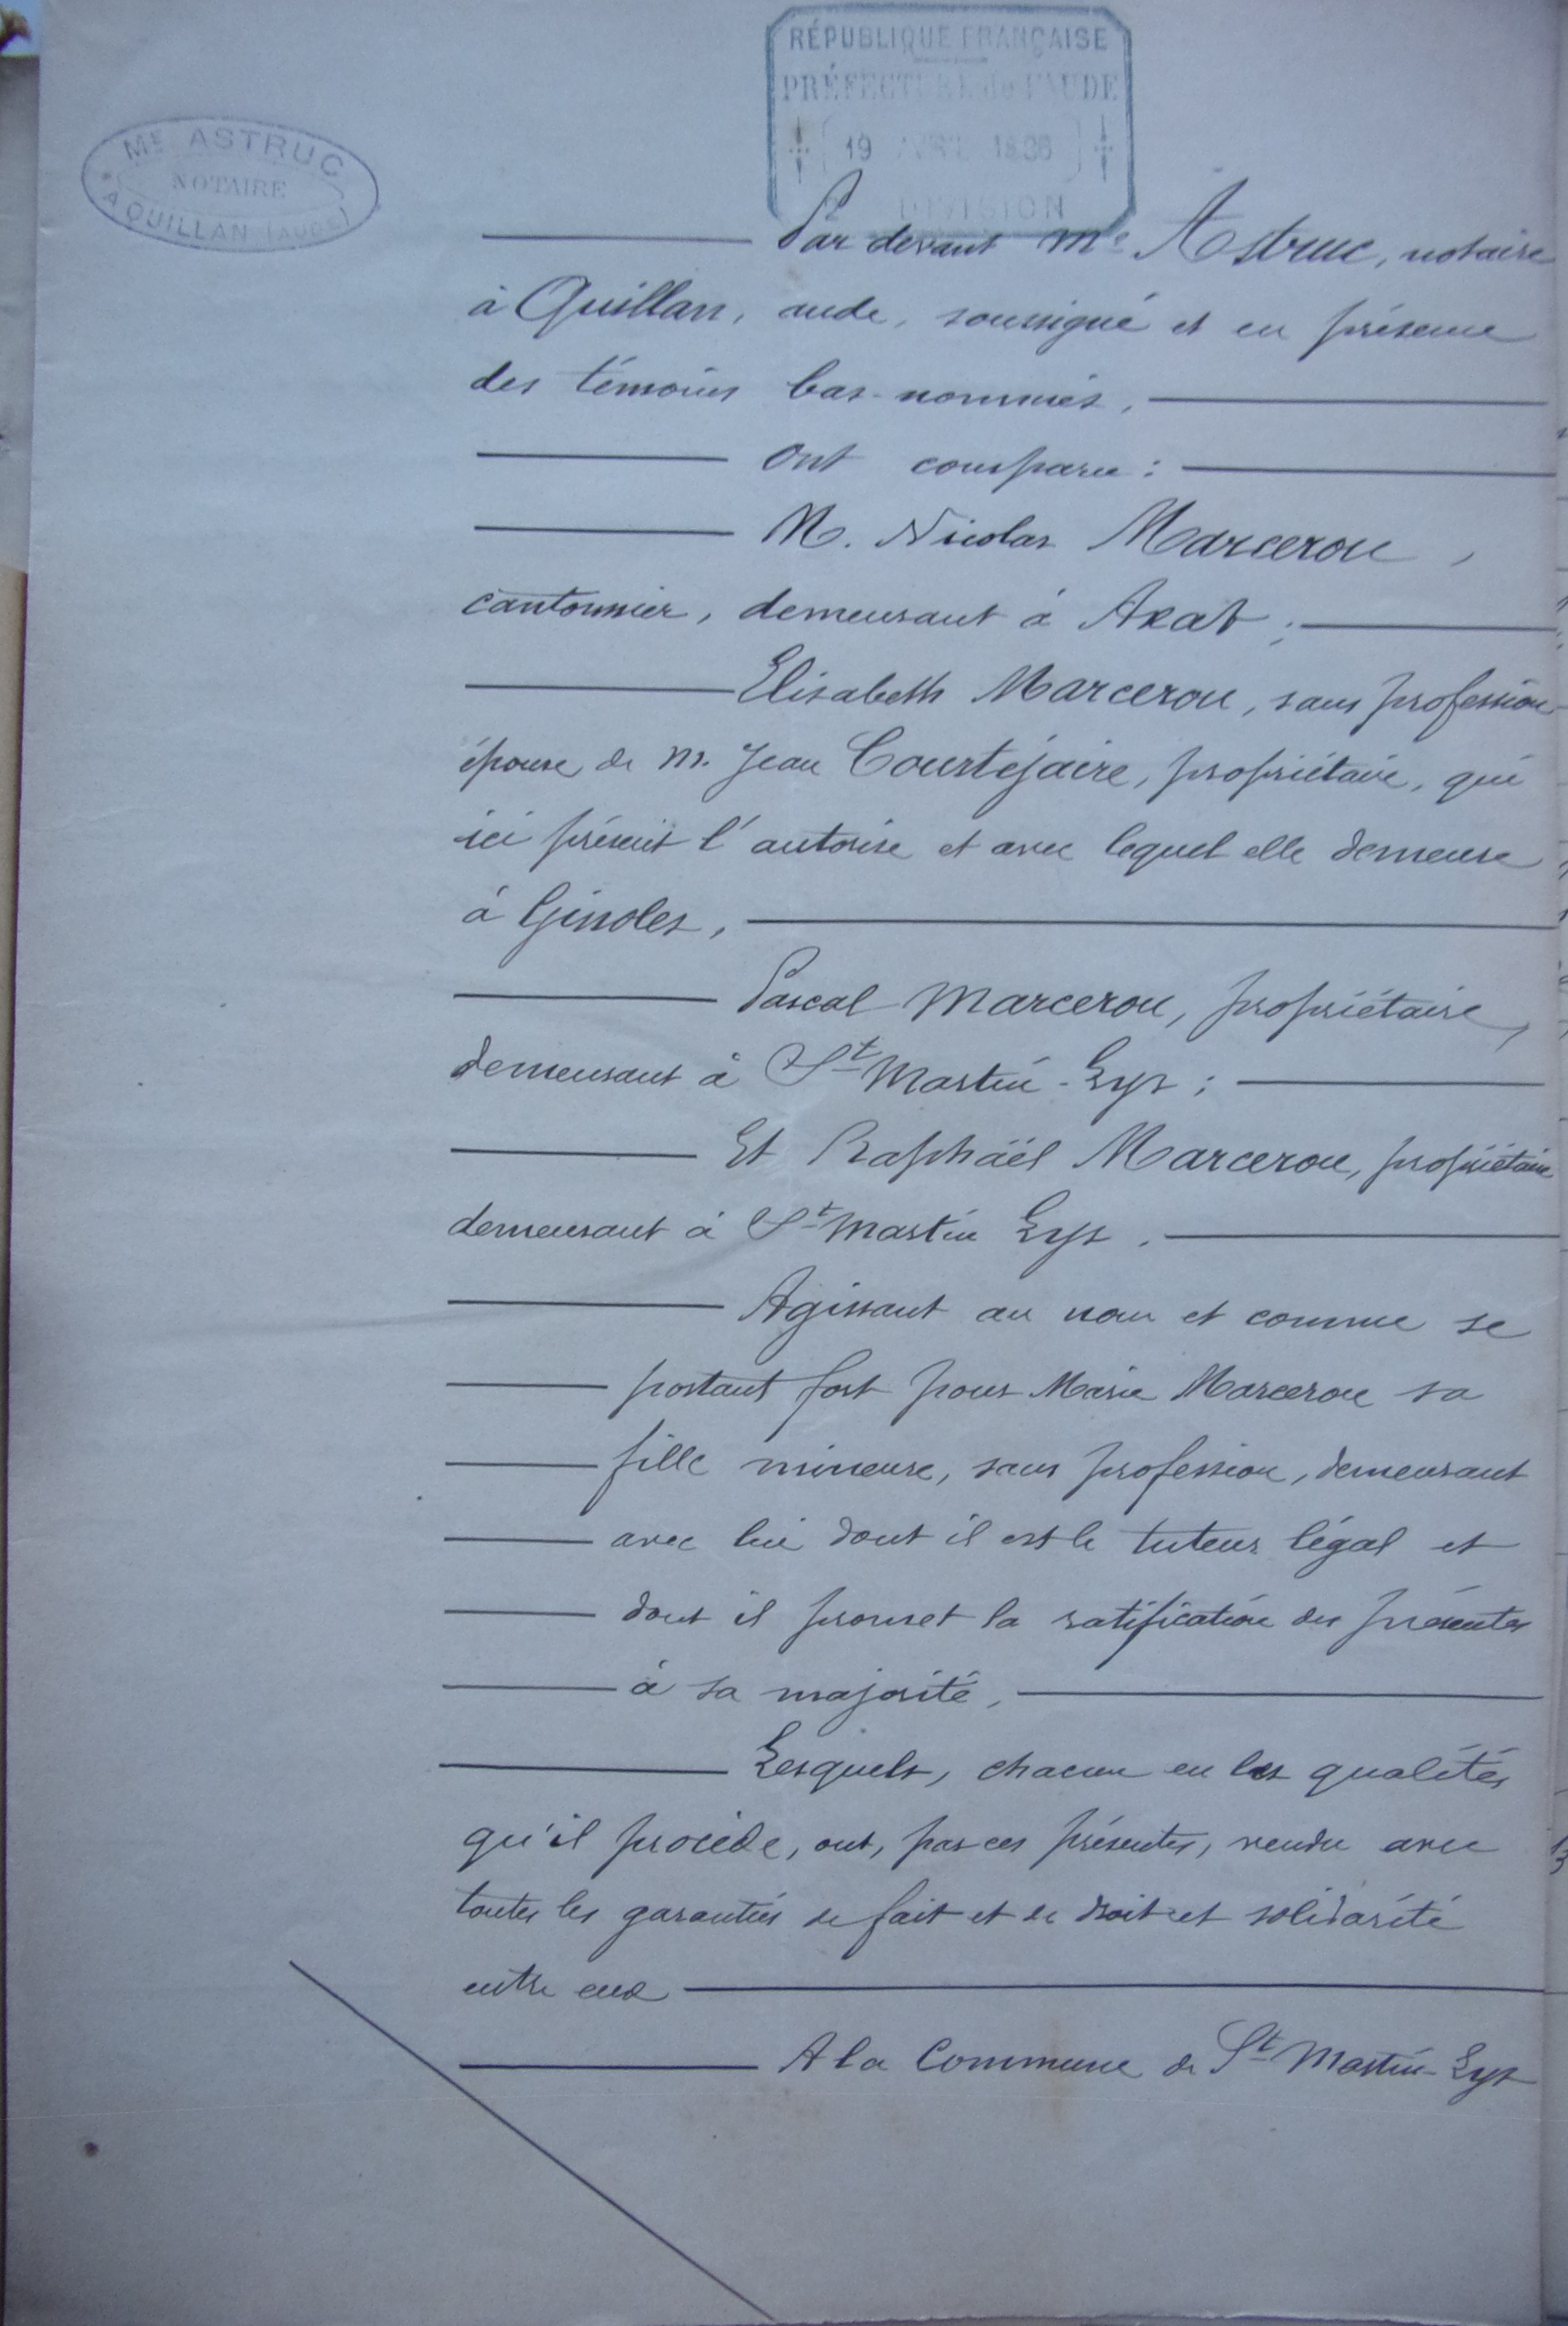 RÉPUBLIQUE FRANÇAISE
PRÉFECTURE de l'AUDE
19 AVRIL
DIVISION
Me ASTRUC
NOTAIRE
A QUILLAN (AUDE)
Par devant Me Astruc, notaire
à Quillan, aude, soussigné et en présence
des témoins bas-nommés,
ont comparu :
M. Nicolas Marcerou,
cantonnier, demeurant à Axat ;
Elisabeth Marcerou, sans profession
épouse de M. Jean Courtéjaire, propriétaire, qui
ici présent l'autorise et avec lequel elle demeure
à Ginoles,
Pascal Marcerou, propriétaire,
demeurant à St Martin-Lys ;
Et Raphaël Marcerou, propriétaire
demeurant à St Martin Lys.
Agissant au nom et comme se
portant fort pour Marie Marcerou sa
fille mineure, sans profession, demeurant
avec lui dont il est le tuteur légal et
dont il promet la ratification des présentes
à sa majorité,
Lesquels, chacun en les qualités
qu'il procède, ont, par ces présentes, vendu avec
toutes les garanties de fait et de droit et solidarité
entre eux
A la Commune de St Martin-Lys